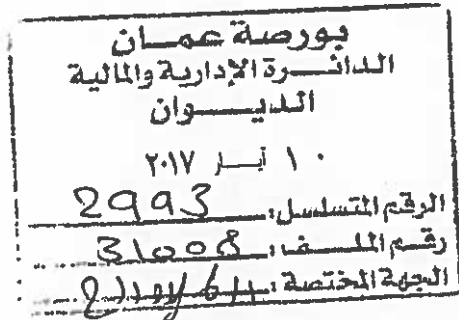 بورصة عمان
الدائرة الإدارية والمالية
الديوان
١٠ أيار ٢٠١٧
الرقم المتسلسل: 2993
رقم الملف: 31008
الجهة المختصة: